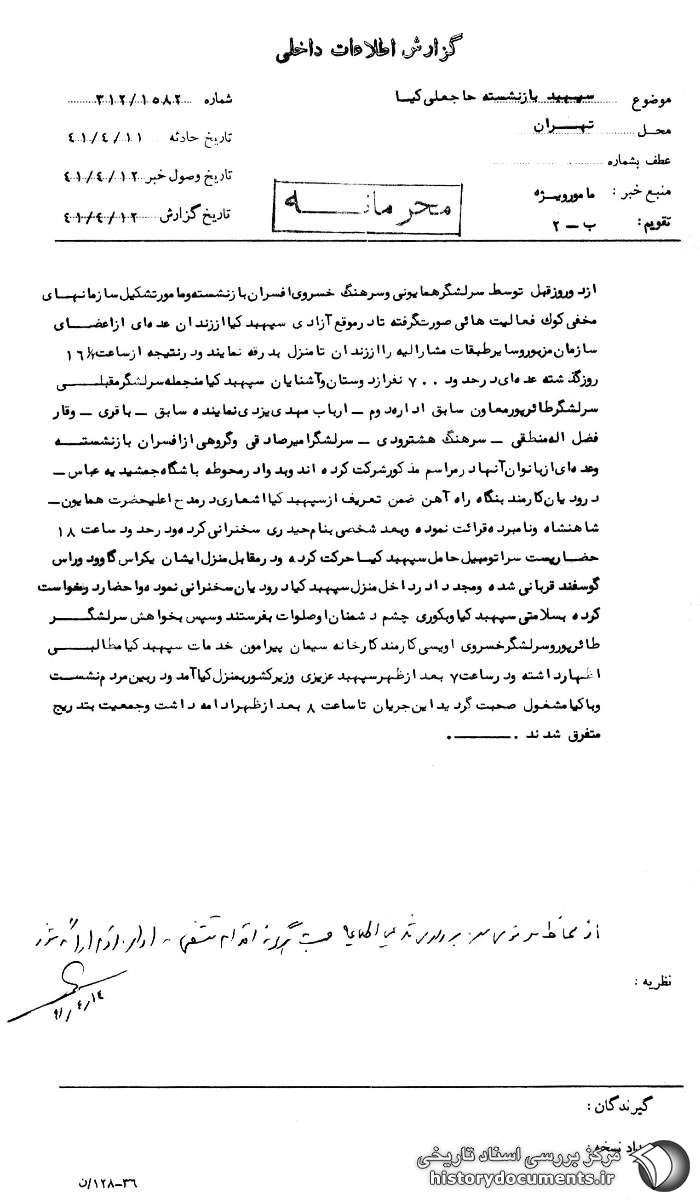 گزارش اطلاعات داخلی
موضوع سپهبد بازنشسته حاجعلی کیا
شماره ۳۱۲/۱۵۸۲
محل تهران
تاریخ حادثه ۴۱/۴/۱۱
عطف بشماره
تاریخ وصول خبر ۴۱/۴/۱۲
منبع خبر : مامور ویژه
تاریخ گزارش ۴۱/۴/۱۲
تقویم : ب – ۲
محرمانه
از دو روز قبل توسط سرلشگر همایونی و سرهنگ خسروی افسران بازنشسته و مامور تشکیل سازمانهای
مخفی کوک فعالیت هائی صورت گرفته تا در موقع آزادی سپهبد کیا از زندان عده ای از اعضای
سازمان مزبور و سایر طبقات مشارالیه را از زندان تا منزل بدرقه نمایند و در نتیجه از ساعت ۱۶½
روز گذشته عده ای در حدود ۷۰۰ نفر از دوستان و آشنایان سپهبد کیا منجمله سرلشگر مقبلی
سرلشگر طائرپور معاون سابق اداره دوم – ارباب مهدی یزدی نماینده سابق – باقری – وقار
فضل اله منطقی – سرهنگ هشترودی – سرلشگر امیر صادقی و گروهی از افسران بازنشسته
وعده ای از بانوان آنها در مراسم مذکور شرکت کرده اند و بدوا در محوطه باشگاه جمشیدیه عباس –
درودیان کارمند بنگاه راه آهن ضمن تعریف از سپهبد کیا اشعاری در مدح اعلیحضرت همایون –
شاهنشاه و نامبرده قرائت نموده و بعد شخصی بنام حیدری سخنرانی کرده و در حدود ساعت ۱۸
حضار بیست سر اتومبیل حامل سپهبد کیا حرکت کرده و در مقابل منزل ایشان یکراس گاو و دوراس
گوسفند قربانی شده و مجددا در داخل منزل سپهبد کیا درودیان سخنرانی نموده و احضار در نخواست
کرده بسلامتی سپهبد کیا و بکوری چشم دشمنان او صلوات بفرستند و سپس بخواهش سرلشگر
طائرپور و سرلشگر خسروی اویسی کارمند کارخانه سیمان پیرامون خدمات سپهبد کیا مطالبی
اظهار داشته و در ساعت ۷ بعد از ظهر سپهبد عزیزی وزیر کشور بمنزل کیا آمد و در بین مردم نشست
و با کیا مشغول صحبت گردید این جریان تا ساعت ۸ بعد از ظهر ادامه داشت و جمعیت بتدریج
متفرق شدند .
نظریه :
۴۱/۴/۱۴
گیرندگان :
داد نسخه :
مرکز بررسی اسناد تاریخی
historydocuments.ir
۳۶–۱۲۸/ن